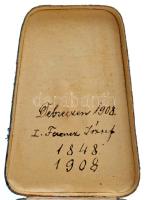 Debreczen 1908.
I. Ferencz József
1848
1908